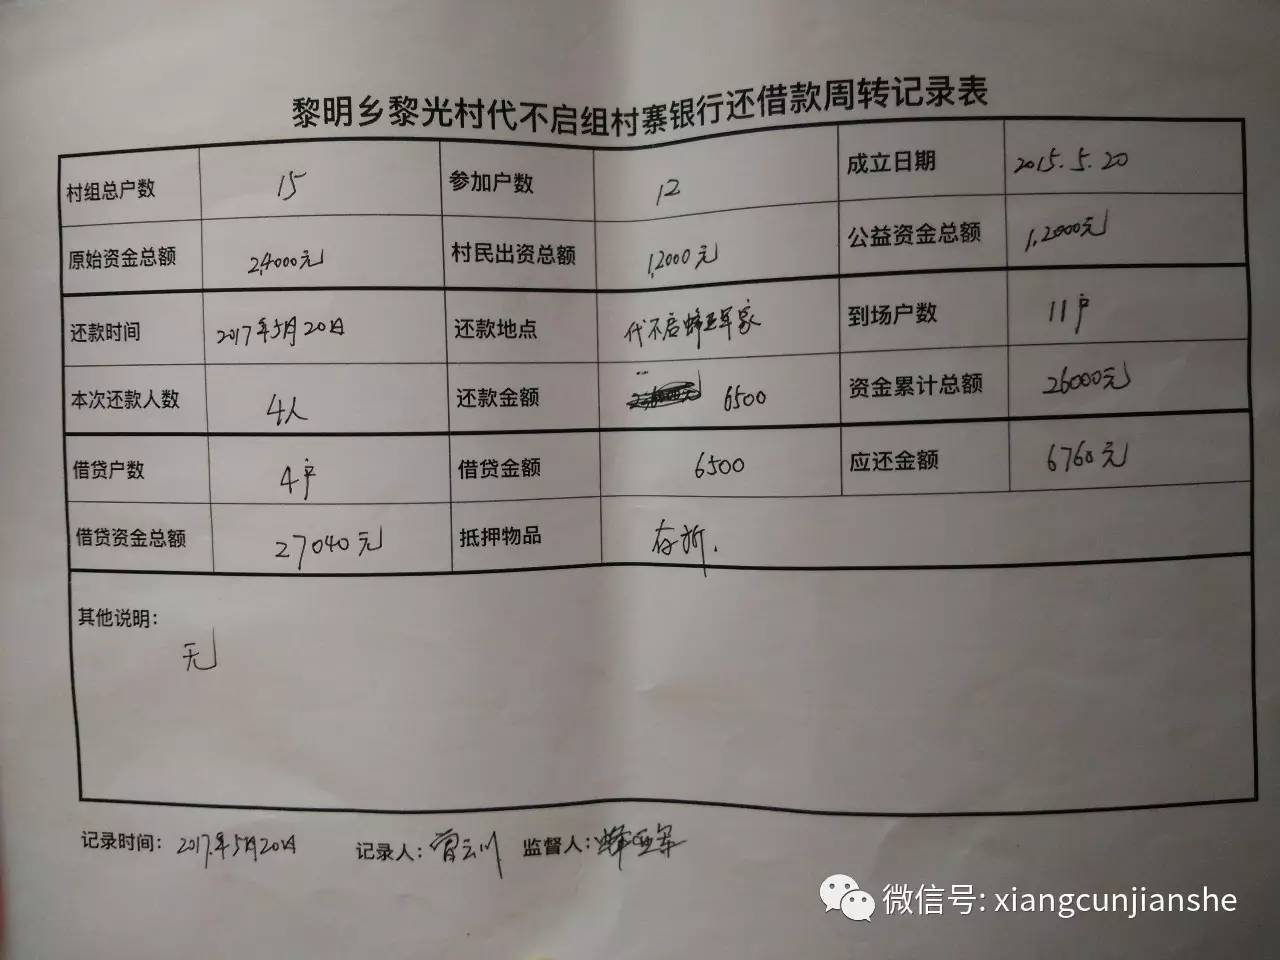 黎明乡黎光村代不启组村寨银行还借款周转记录表
村组总户数 15 参加户数 12 成立日期 2015.5.20
原始资金总额 2,4000元 村民出资总额 1,2000元 公益资金总额 1,2000元
还款时间 2017年5月20日 还款地点 代不启蜂亚军家 到场户数 11户
本次还款人数 4人 还款金额 6500 资金累计总额 26000元
借贷户数 4户 借贷金额 6500 应还金额 6760元
借贷资金总额 27040元 抵押物品 存折.
其他说明:
无
记录时间: 2017年5月20日 记录人: 曾云川 监督人: 蜂亚军
微信号: xiangcunjianshe